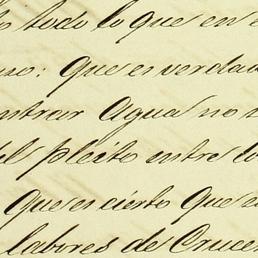 todo lo que en e
so: Que es verdad
ntrar Agua no
el pleito entre lo
Que es cierto Que
labores de Cruce